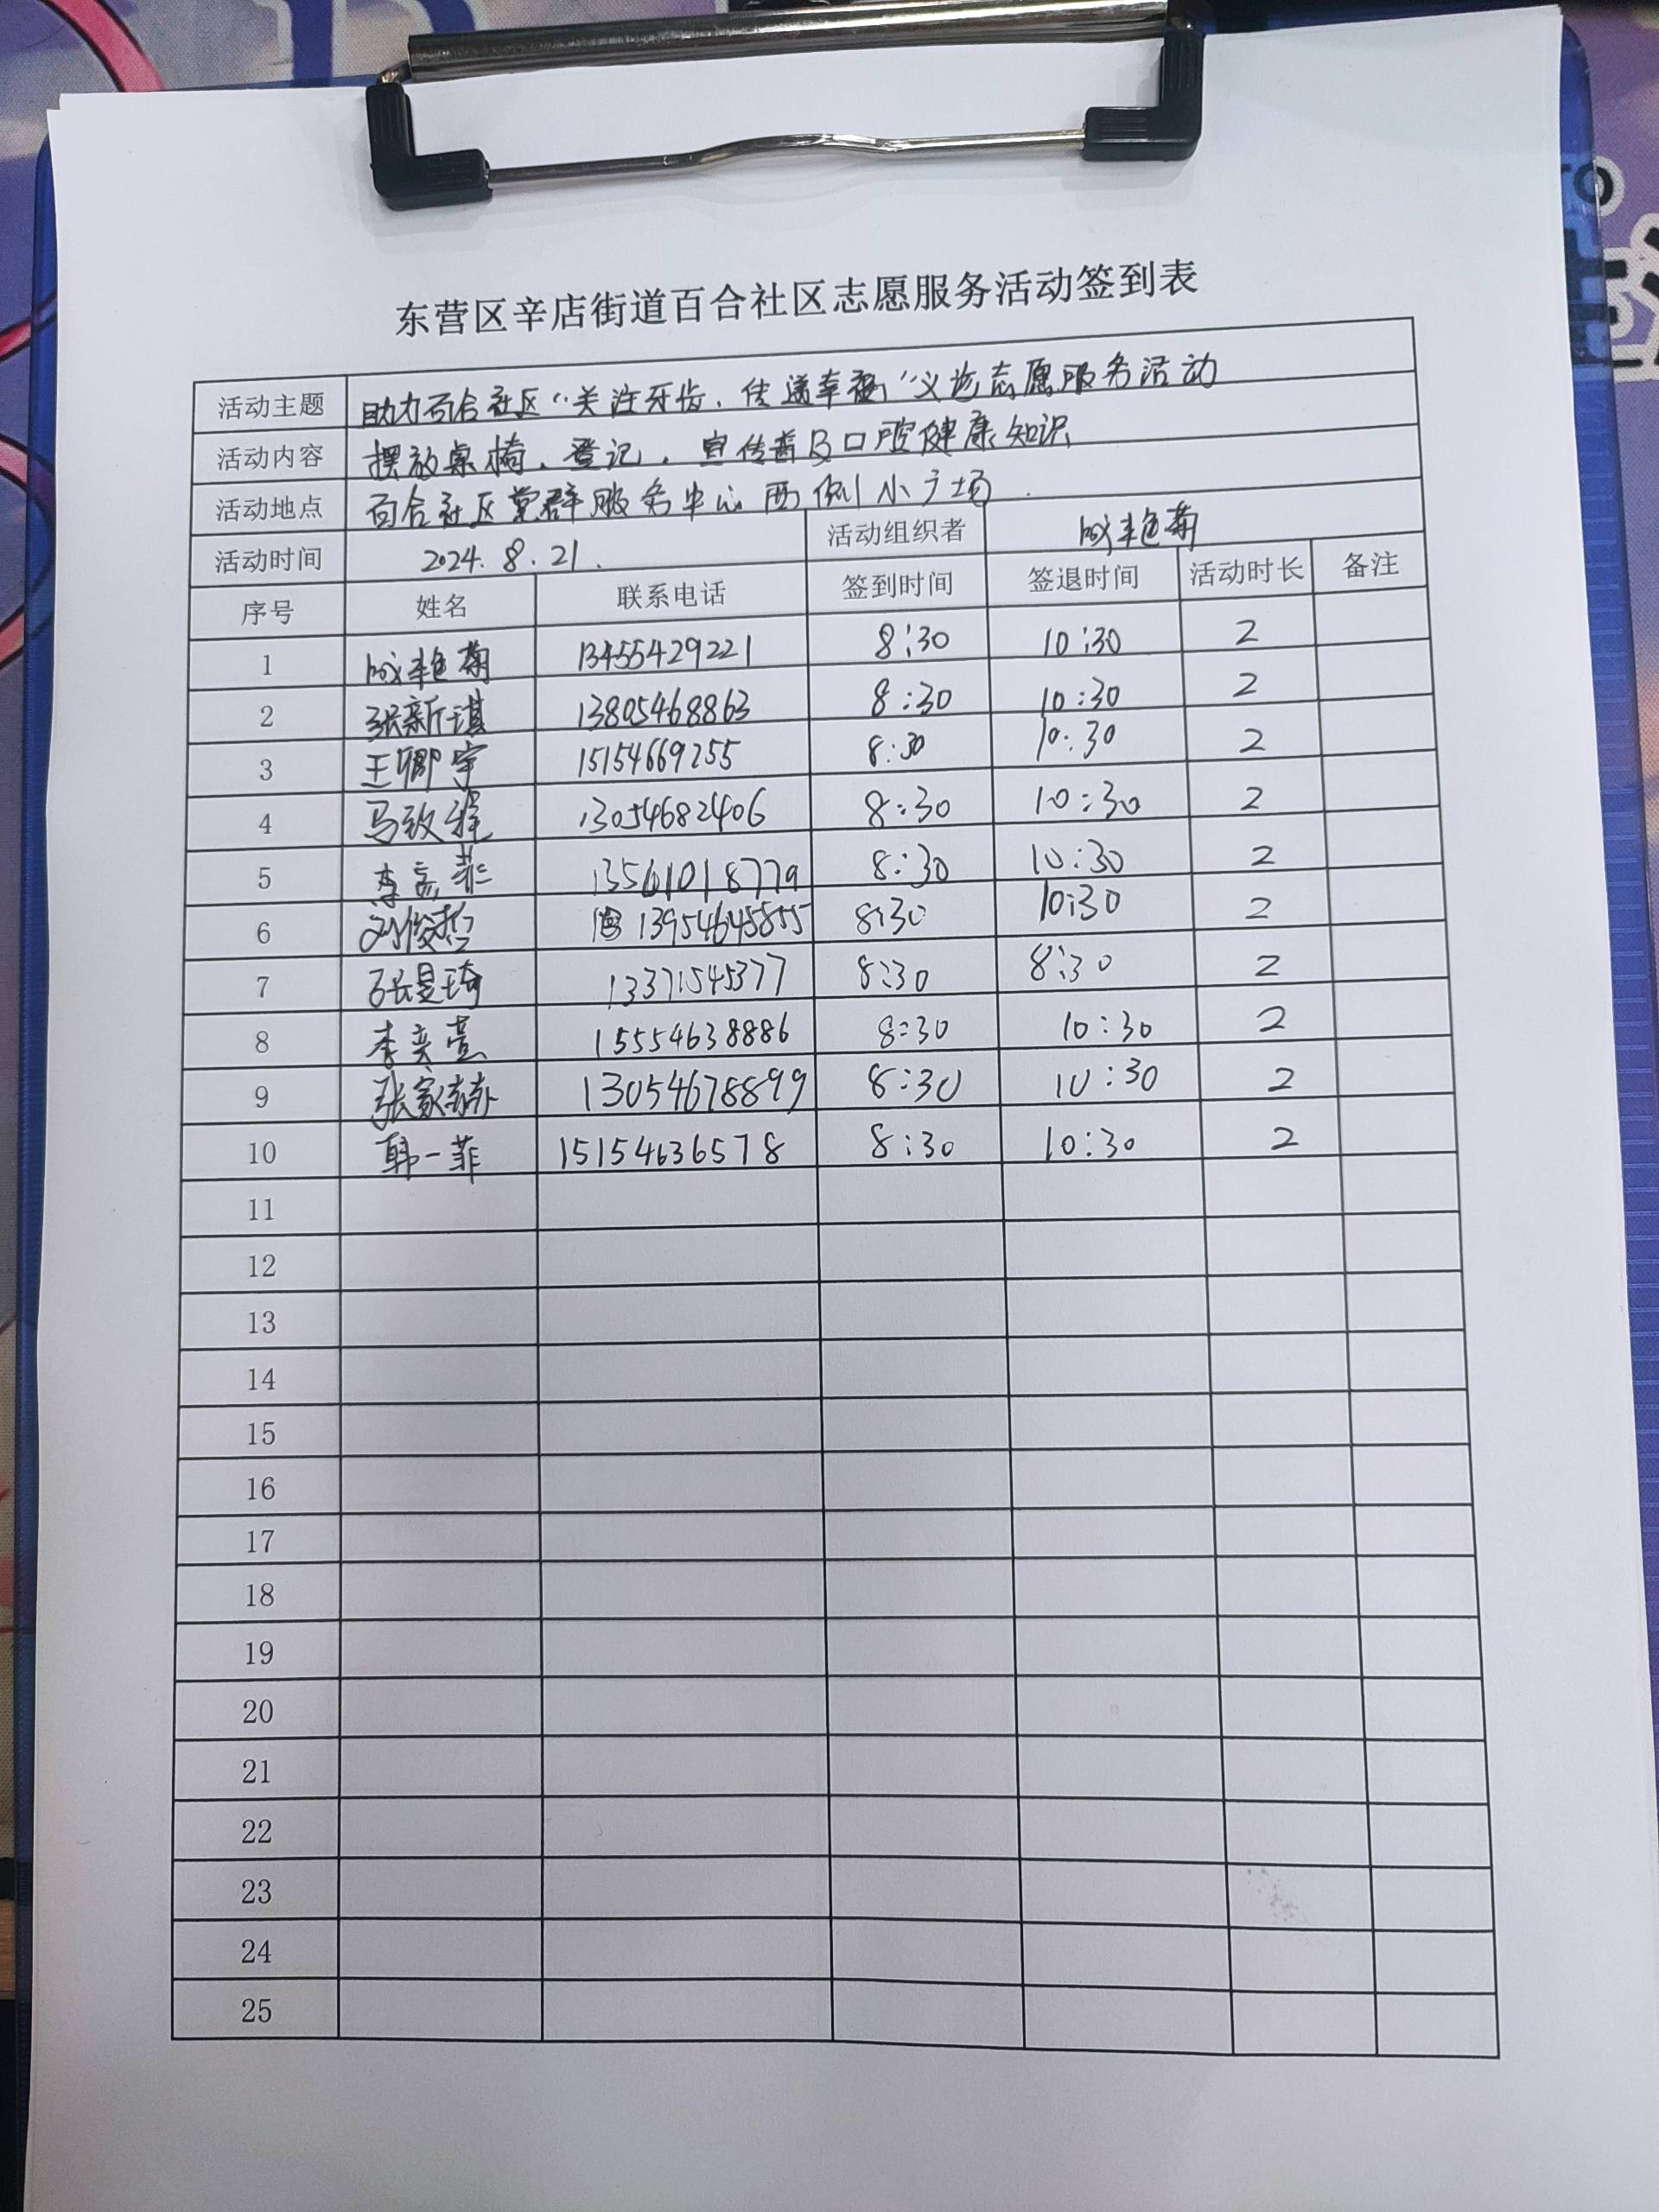 东营区辛店街道百合社区志愿服务活动签到表
活动主题 助力百合社区“关注牙齿、传递幸福”义诊志愿服务活动
活动内容 摆放桌椅、登记、宣传普及口腔健康知识
活动地点 百合社区党群服务中心西侧小广场.
活动时间 2024.8.21. 活动组织者
序号 姓名 联系电话 签到时间 签退时间 活动时长 备注
1 13455429221 8:30 10:30 2
2 张新琪 13805468863 8:30 10:30 2
3 王卿宇 15154669255 8:30 10:30 2
4 马致程 13054682406 8:30 10:30 2
5 菲 13561018779 8:30 10:30 2
6 刘俊哲 13954645855 8:30 10:30 2
7 张昱琦 13371545377 8:30 8:30 2
8 李奕萱 15554638886 8:30 10:30 2
9 张家赫 13054678899 8:30 10:30 2
10 韩一菲 15154636578 8:30 10:30 2
11
12
13
14
15
16
17
18
19
20
21
22
23
24
25